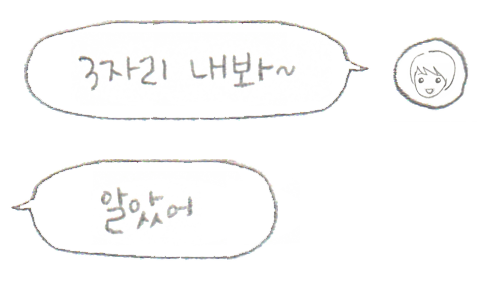 3자리 내봐~
알았어